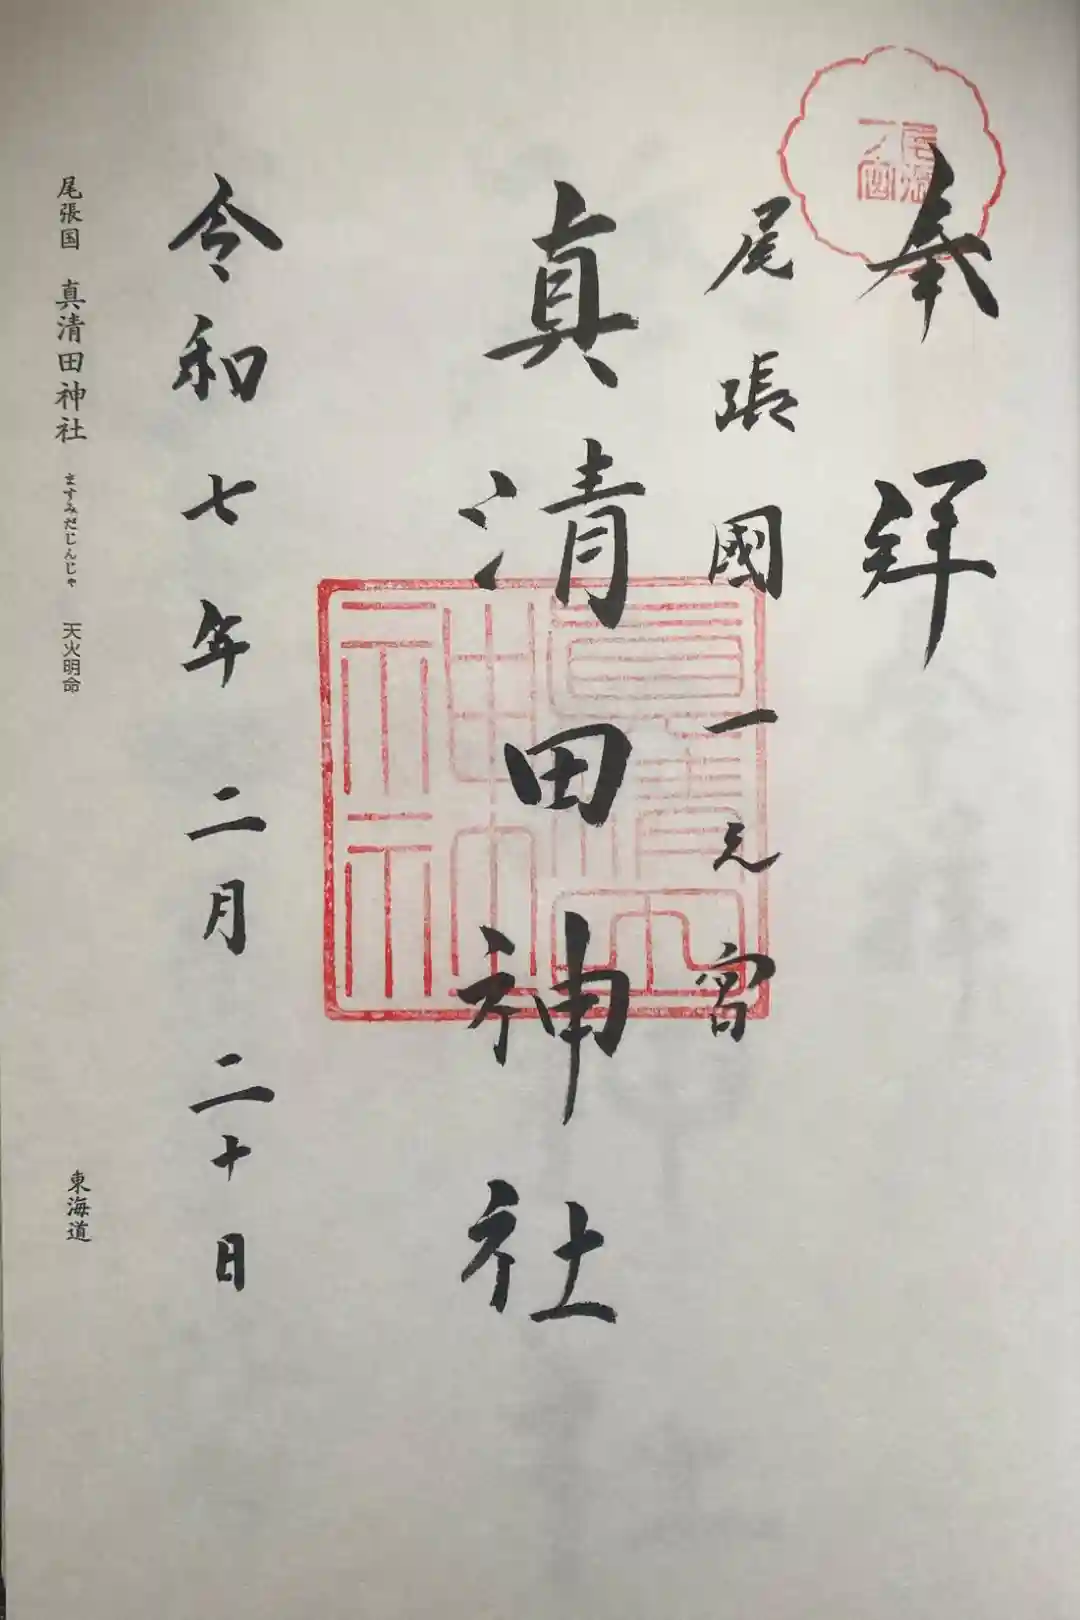 奉拝
尾張國一之宮
真清田神社
令和七年二月二十日
尾張国 真清田神社 ますみだじんじゃ 天火明命 東海道
尾張
一宮
真清田
神社